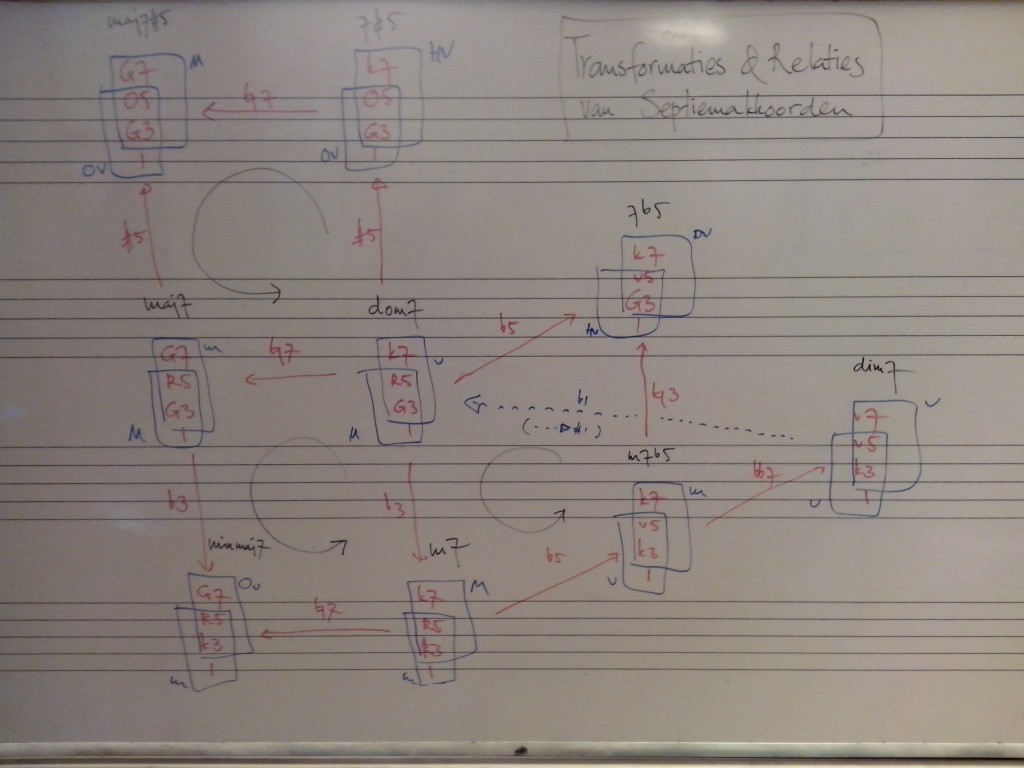 maj7#5
7#5
Transformaties & Relaties
van Septiemakkoorden
G7
M
O5
G3
1
OV
♮7
k7
HV
O5
G3
1
OV
#5
#5
7b5
k7
DV
v5
G3
1
HV
maj7
G7
m
R5
G3
1
M
♮7
dom7
k7
v
R5
G3
1
M
b5
b1
♮3
dim7
v7
v
v5
k3
1
v
b3
b3
m7b5
k7
m
v5
k3
1
v
bb7
minmaj7
G7
OV
R5
k3
1
m
♮7
m7
k7
M
R5
k3
1
m
b5